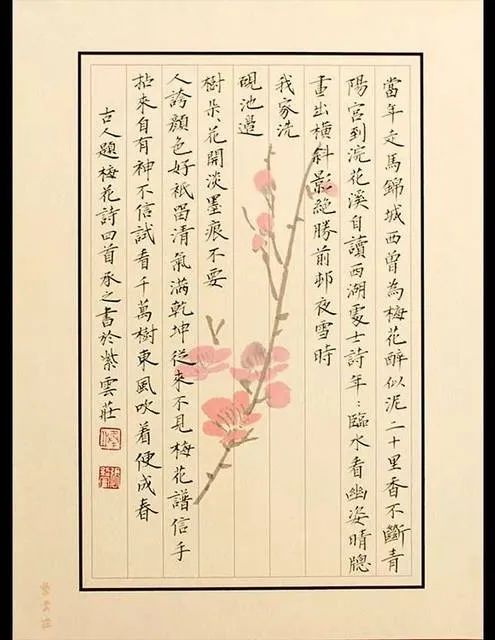 當年走馬錦城西曾為梅花醉似泥二十里香不斷青
陽宮到浣花溪自讀西湖處士詩年〻臨水看幽姿晴牕
畫出橫斜影絕勝前邨夜雪時
我家洗
硯池邊
樹朵〻花開淡墨痕不要
人誇顏色好祇留清氣滿乾坤從來不見梅花譜信手
拈來自有神不信試看千萬樹東風吹着便成春
古人題梅花詩四首承之書於紫雲莊
紫雲莊